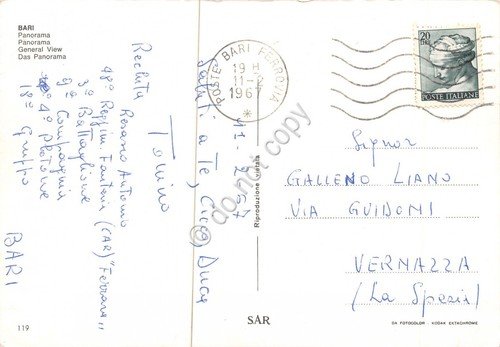 BARI
Panorama
Panorama
General View
Das Panorama
POSTE BARI FERROVIA
19 H
11-2
1967
20
LIRE
POSTE ITALIANE
11-2-67
Saluti a Te, Cico, Duca
Tonino
Recluta
Rosario Antonio
48° Reggim. Fanteria (CAR) "Ferrara"
3° Battaglione
9° Compagnia
4° Plotone
18° Gruppo
BARI
Signor
GALLENO LIANO
VIA GUIDONI
VERNAZZA
(La Spezia)
Riproduzione vietata
do not copy
119
SAR
DA FOTOCOLOR KODAK EKTACHROME